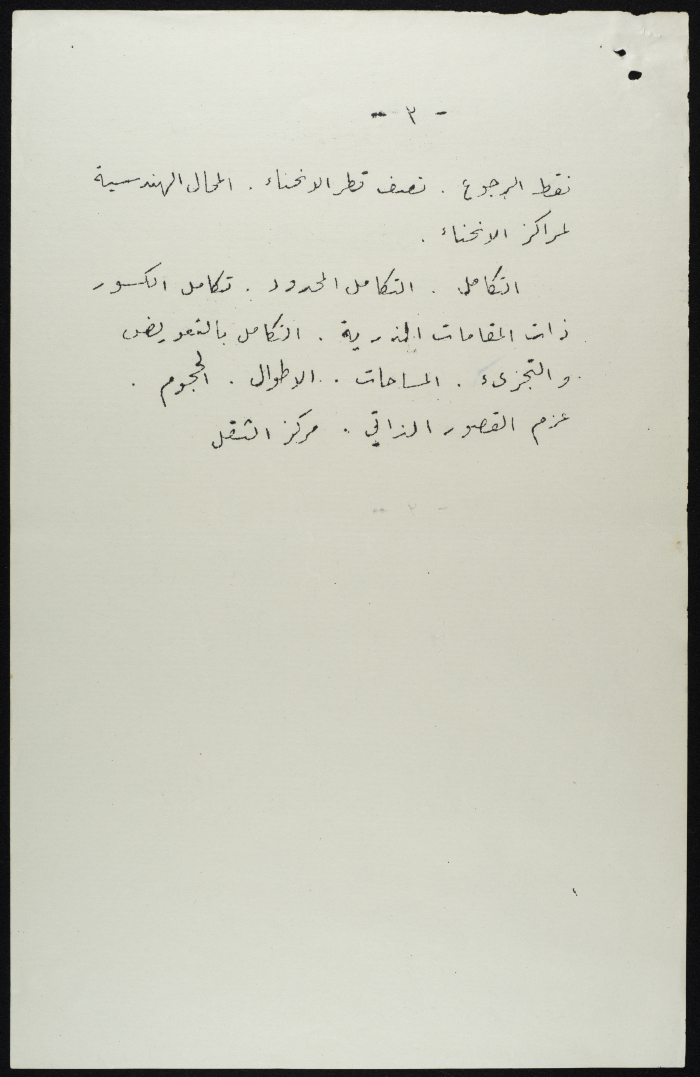 - ٣ -
نقط الرجوع . نصف قطر الانحناء . المحال الهندسية
لمراكز الانحناء .
التكامل . التكامل المحدود . تكامل الكسور
ذات المقامات الجذرية . التكامل بالتعويض
والتجزىء . المساحات . الاطوال . الحجوم .
عزم القصور الذاتي . مركز الثقل